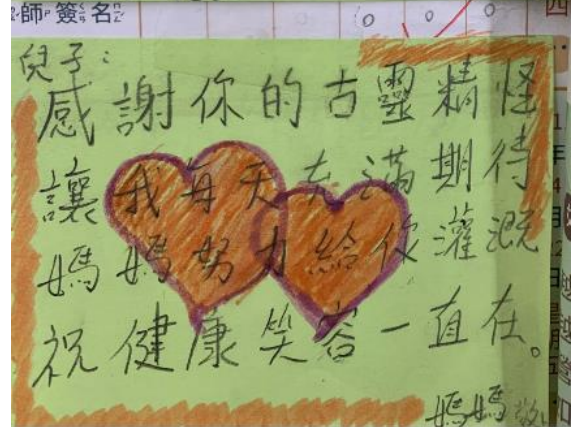 師簽名
四
兒子：
感謝你的古靈精怪
讓我每天充滿期待
媽媽努力給你灌溉
祝健康笑容一直在。
媽媽